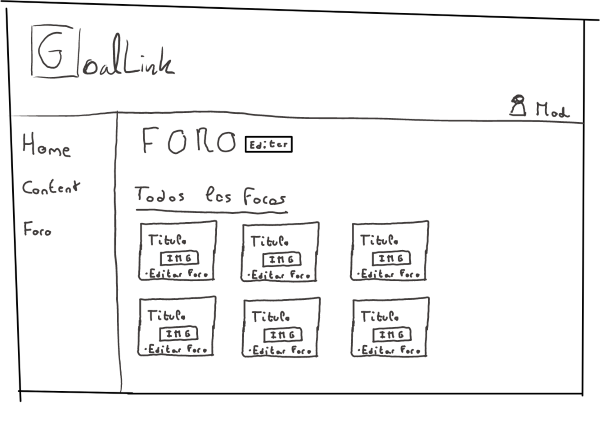 GoalLink
Mod
Home
Content
Foro
FORO Editar
Todos los Foros
Titulo
IMG
·Editar Foro
Titulo
IMG
·Editar Foro
Titulo
IMG
·Editar Foro
Titulo
IMG
·Editar Foro
Titulo
IMG
·Editar Foro
Titulo
IMG
·Editar Foro